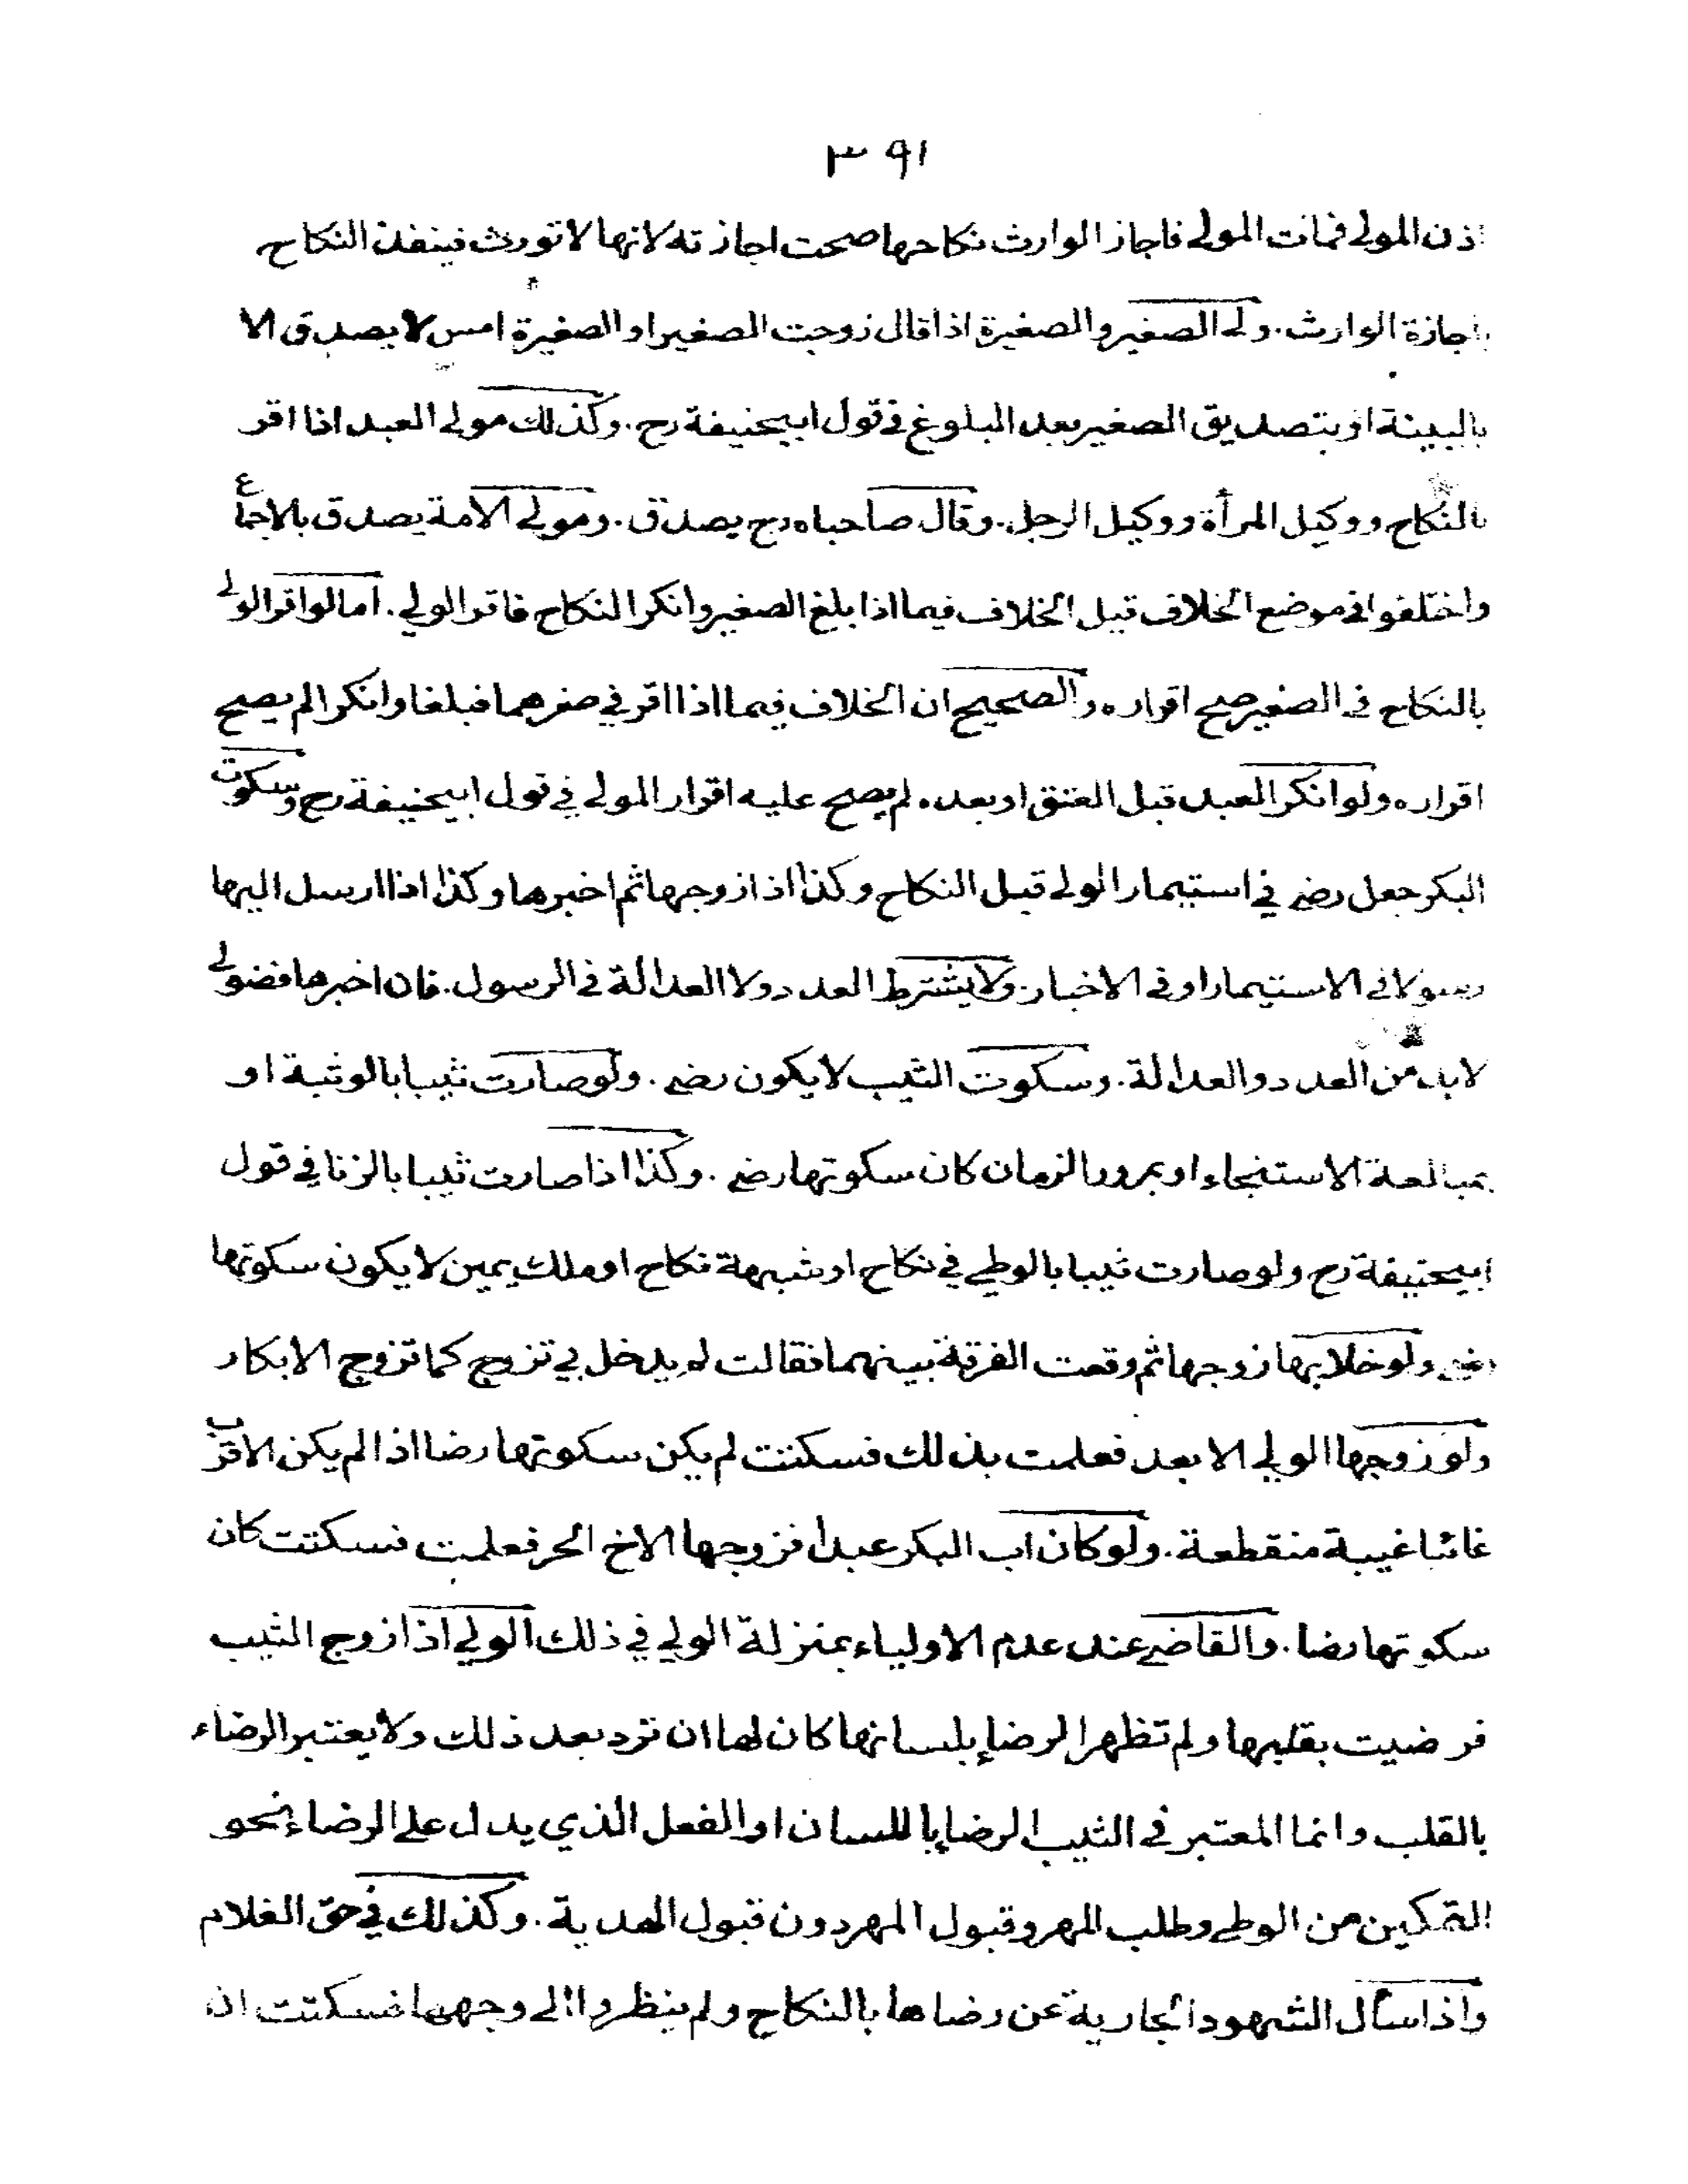 ٣٩١
اذن المولى فمات المولى فاجاز الوارث نكاحها صحت اجازته لانها لا تورث فينفذ النكاح
باجازة الوارث. ولي الصغير والصغيرة اذا قال زوجت الصغير او الصغيرة امس لا يصدق الا
بالبينة او بتصديق الصغير بعد البلوغ في قول ابيحنيفة رح. وكذلك مولى العبد اذا اقر
بالنكاح ووكيل المرأة ووكيل الرجل. وقال صاحباه رح يصدق. ومولى الامة يصدق بالاجماع
واختلفوا في موضع الخلاف قيل الخلاف فيما اذا بلغ الصغير وانكر النكاح فاقر الولي. اما لو اقر الولي
بالنكاح في الصغير صح اقراره والصحيح ان الخلاف فيما اذا اقر في صغرهما فبلغا وانكرا لم يصح
اقراره ولو انكر العبد قبل العتق او بعده لم يصح عليه اقرار المولى في قول ابيحنيفة رح وسكوت
البكر جعل رضى في استيمار الولي قبل النكاح وكذا اذا زوجها ثم اخبرها وكذا اذا ارسل اليها
رسولا في الاستيمار او في الاخبار. ولا يشترط العدد ولا العدالة في الرسول. فان اخبرها فضولي
لابد من العدد والعدالة. وسكوت الثيب لا يكون رضى. ولو صارت ثيبا بالوثبة او
بمبالغة الاستنجاء او بمرور الزمان كان سكوتها رضى. وكذا اذا صارت ثيبا بالزنا في قول
ابيحنيفة رح ولو صارت ثيبا بالوطي في نكاح او شبهة نكاح او ملك يمين لا يكون سكوتها
رضى ولو خلا بها زوجها ثم وقعت الفرقة بينهما فقالت لم يدخل بي تزوج كما تزوج الابكار
ولو زوجها الولي الابعد فعلمت بذلك فسكتت لم يكن سكوتها رضا اذا لم يكن الاقرب
غائبا غيبة منقطعة. ولو كان اب البكر عبدا فزوجها الاخ الحر فعلمت فسكتت كان
سكوتها رضا. والقاضي عند عدم الاولياء بمنزلة الولي في ذلك الولي اذا زوج الثيب
فرضيت بقلبها ولم تظهر الرضا بلسانها كان لها ان ترد بعد ذلك ولا يعتبر الرضاء
بالقلب وانما المعتبر في الثيب الرضا باللسان او الفعل الذي يدل على الرضاء نحو
التمكين من الوطي وطلب المهر وقبول المهر دون قبول الهدية. وكذلك في حق الغلام
واذا سأل الشهود الجارية عن رضاها بالنكاح ولم ينظروا الى وجهها فسكتت ان